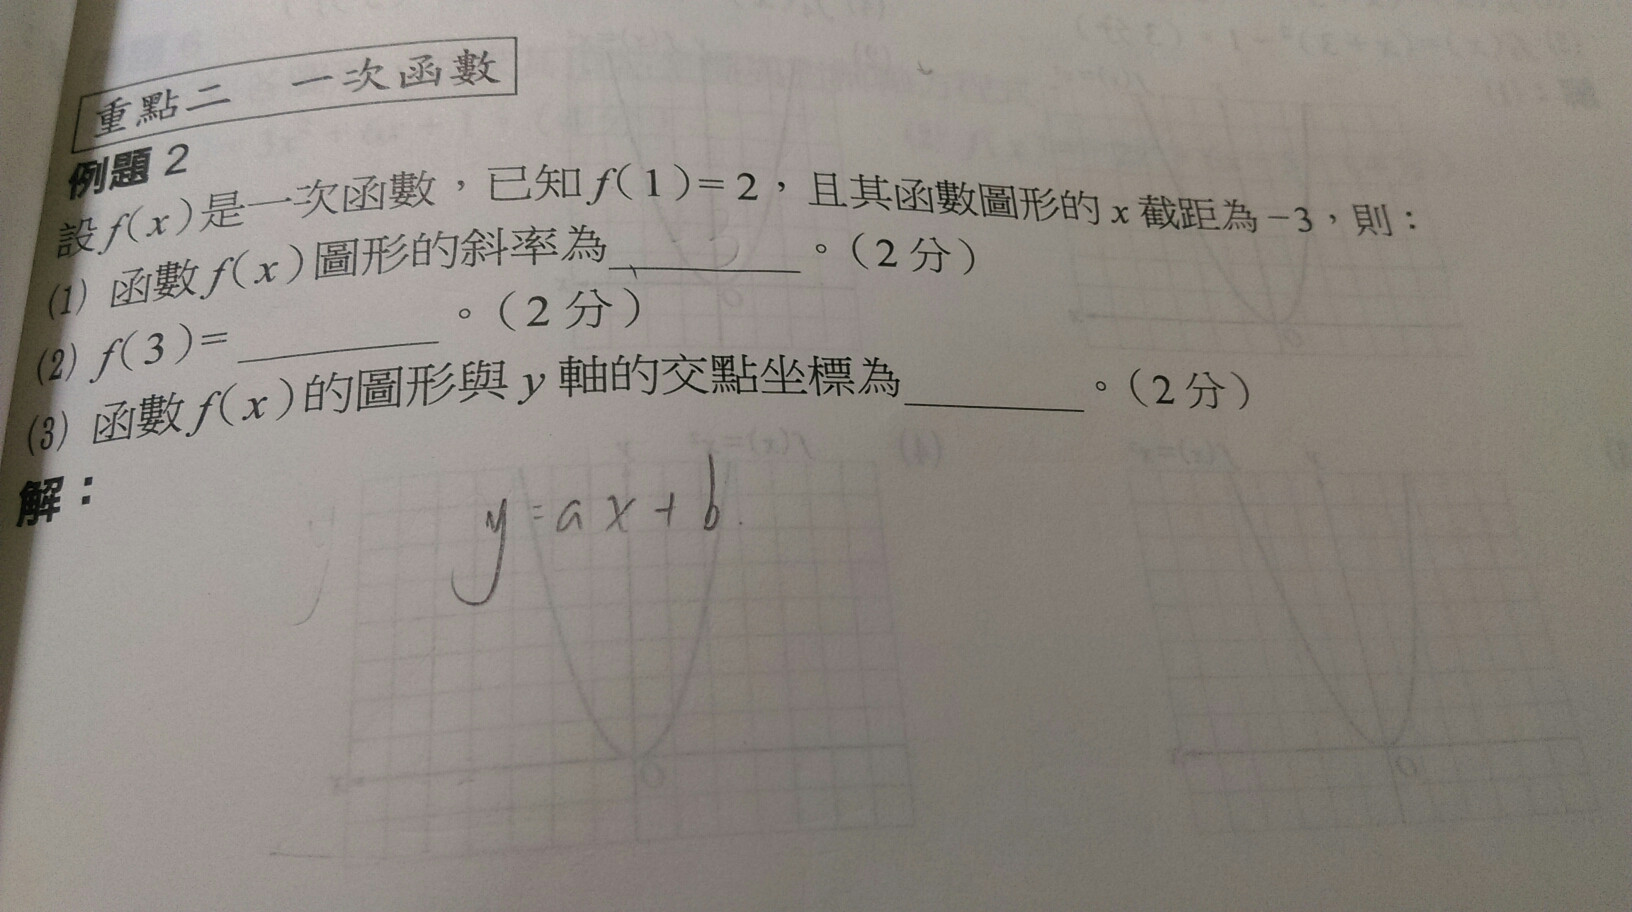 重點二 一次函數
例題 2
設 f(x) 是一次函數，已知 f(1)=2，且其函數圖形的 x 截距為 −3，則：
(1) 函數 f(x) 圖形的斜率為________。（2 分）
(2) f(3)=________。（2 分）
(3) 函數 f(x) 的圖形與 y 軸的交點坐標為________。（2 分）
解：
y=ax+b.